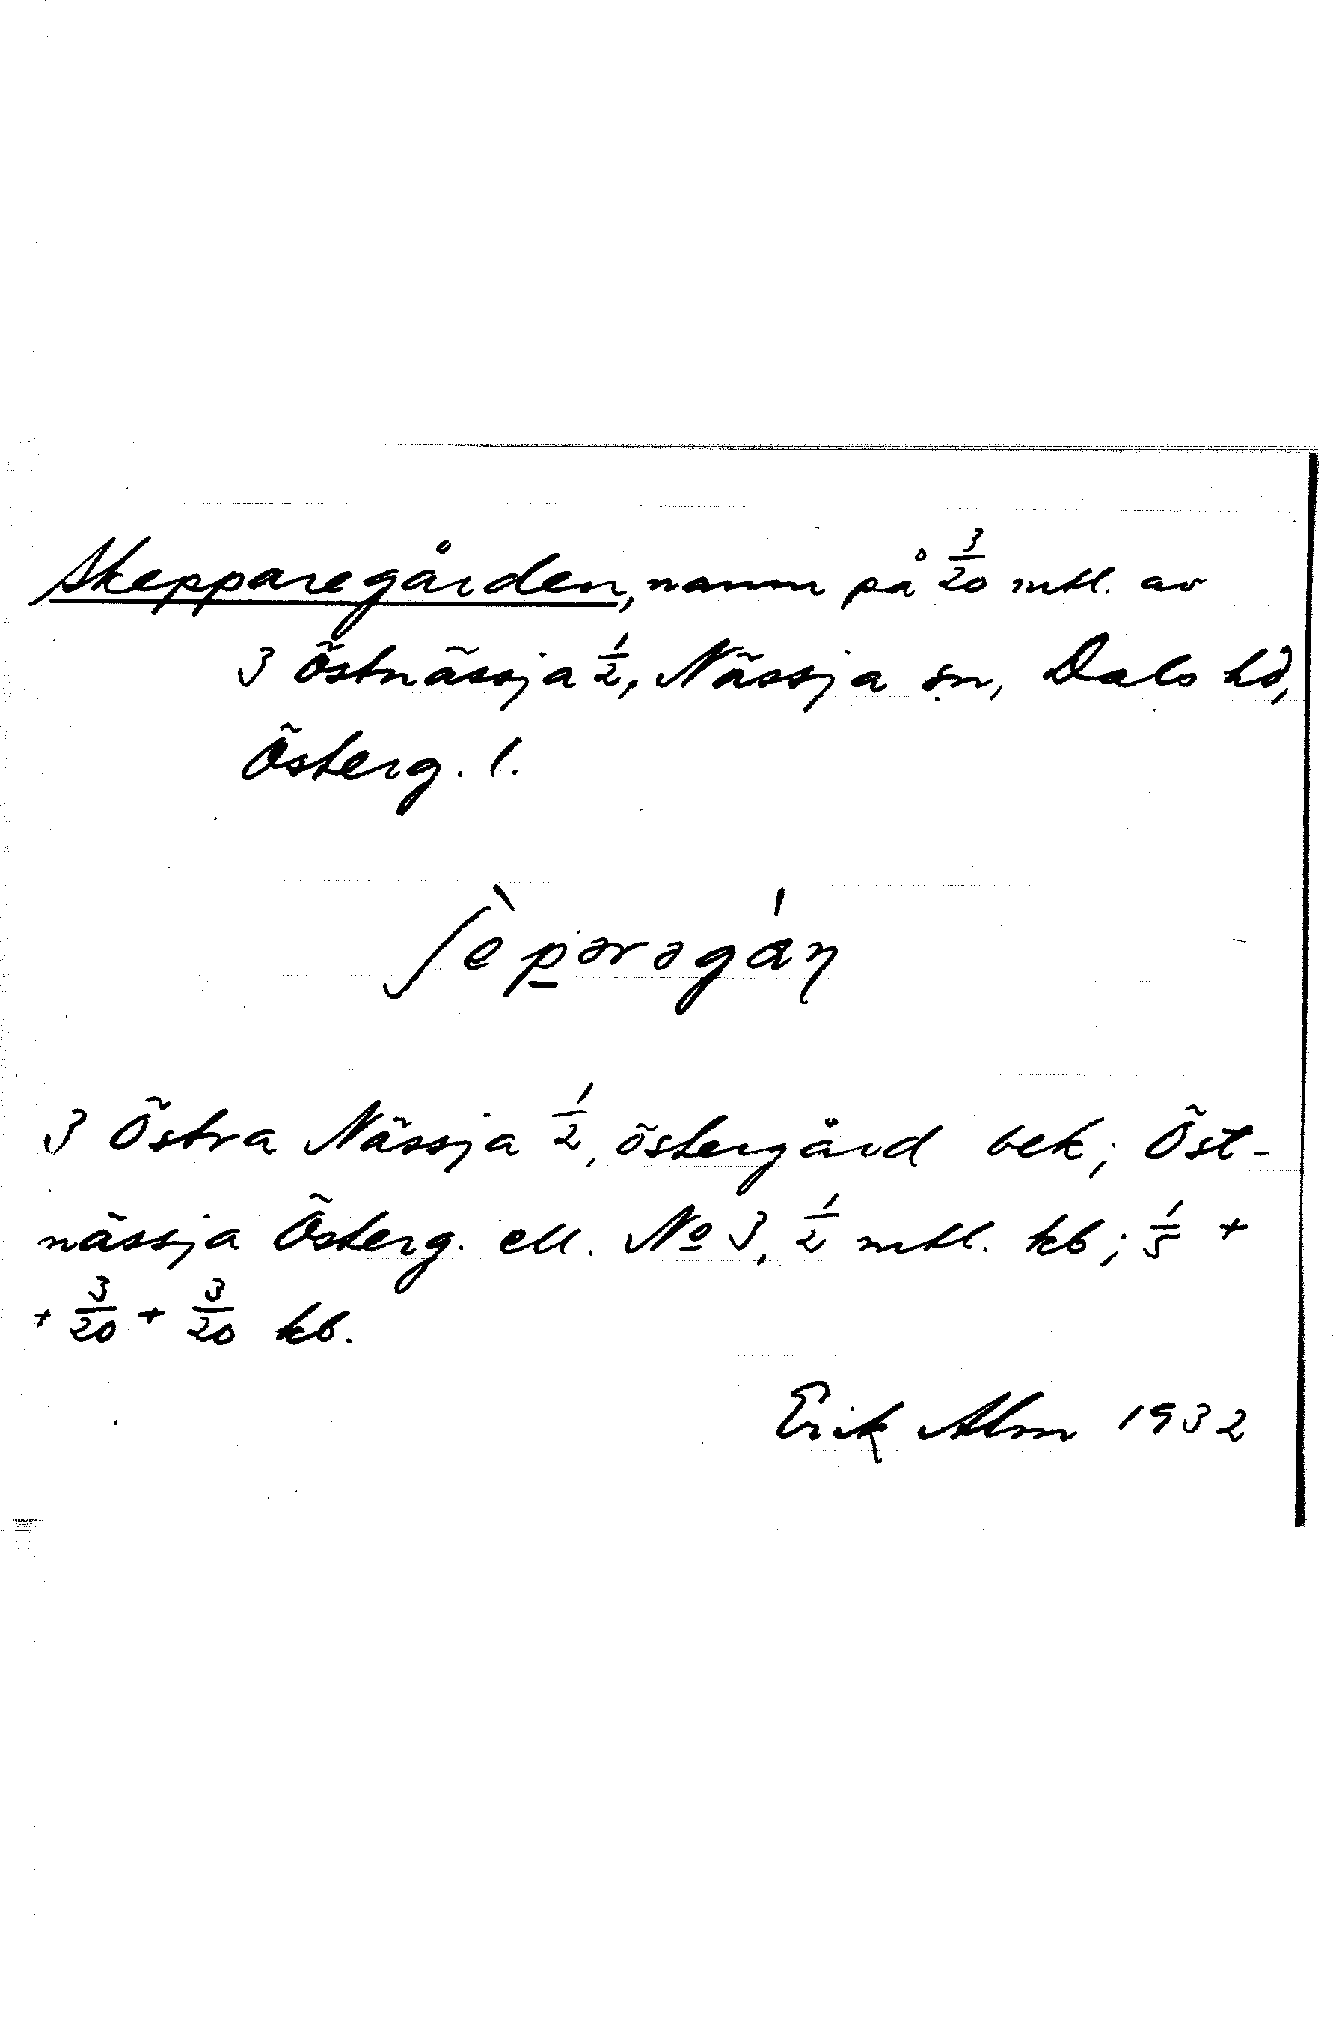 Skepparegården, namn på 3/20 mtl. av
3 Östnässja 1/2, Nässja sn, Dals hd,
Österg. l.
ʃèpərəgán
3 Östra Nässja 1/2, östergård bek; Öst-
nässja Österg. ell. No 3, 1/2 mtl. kb; 1/5 +
+ 3/20 + 3/20 kb.
Erik Alm 1932